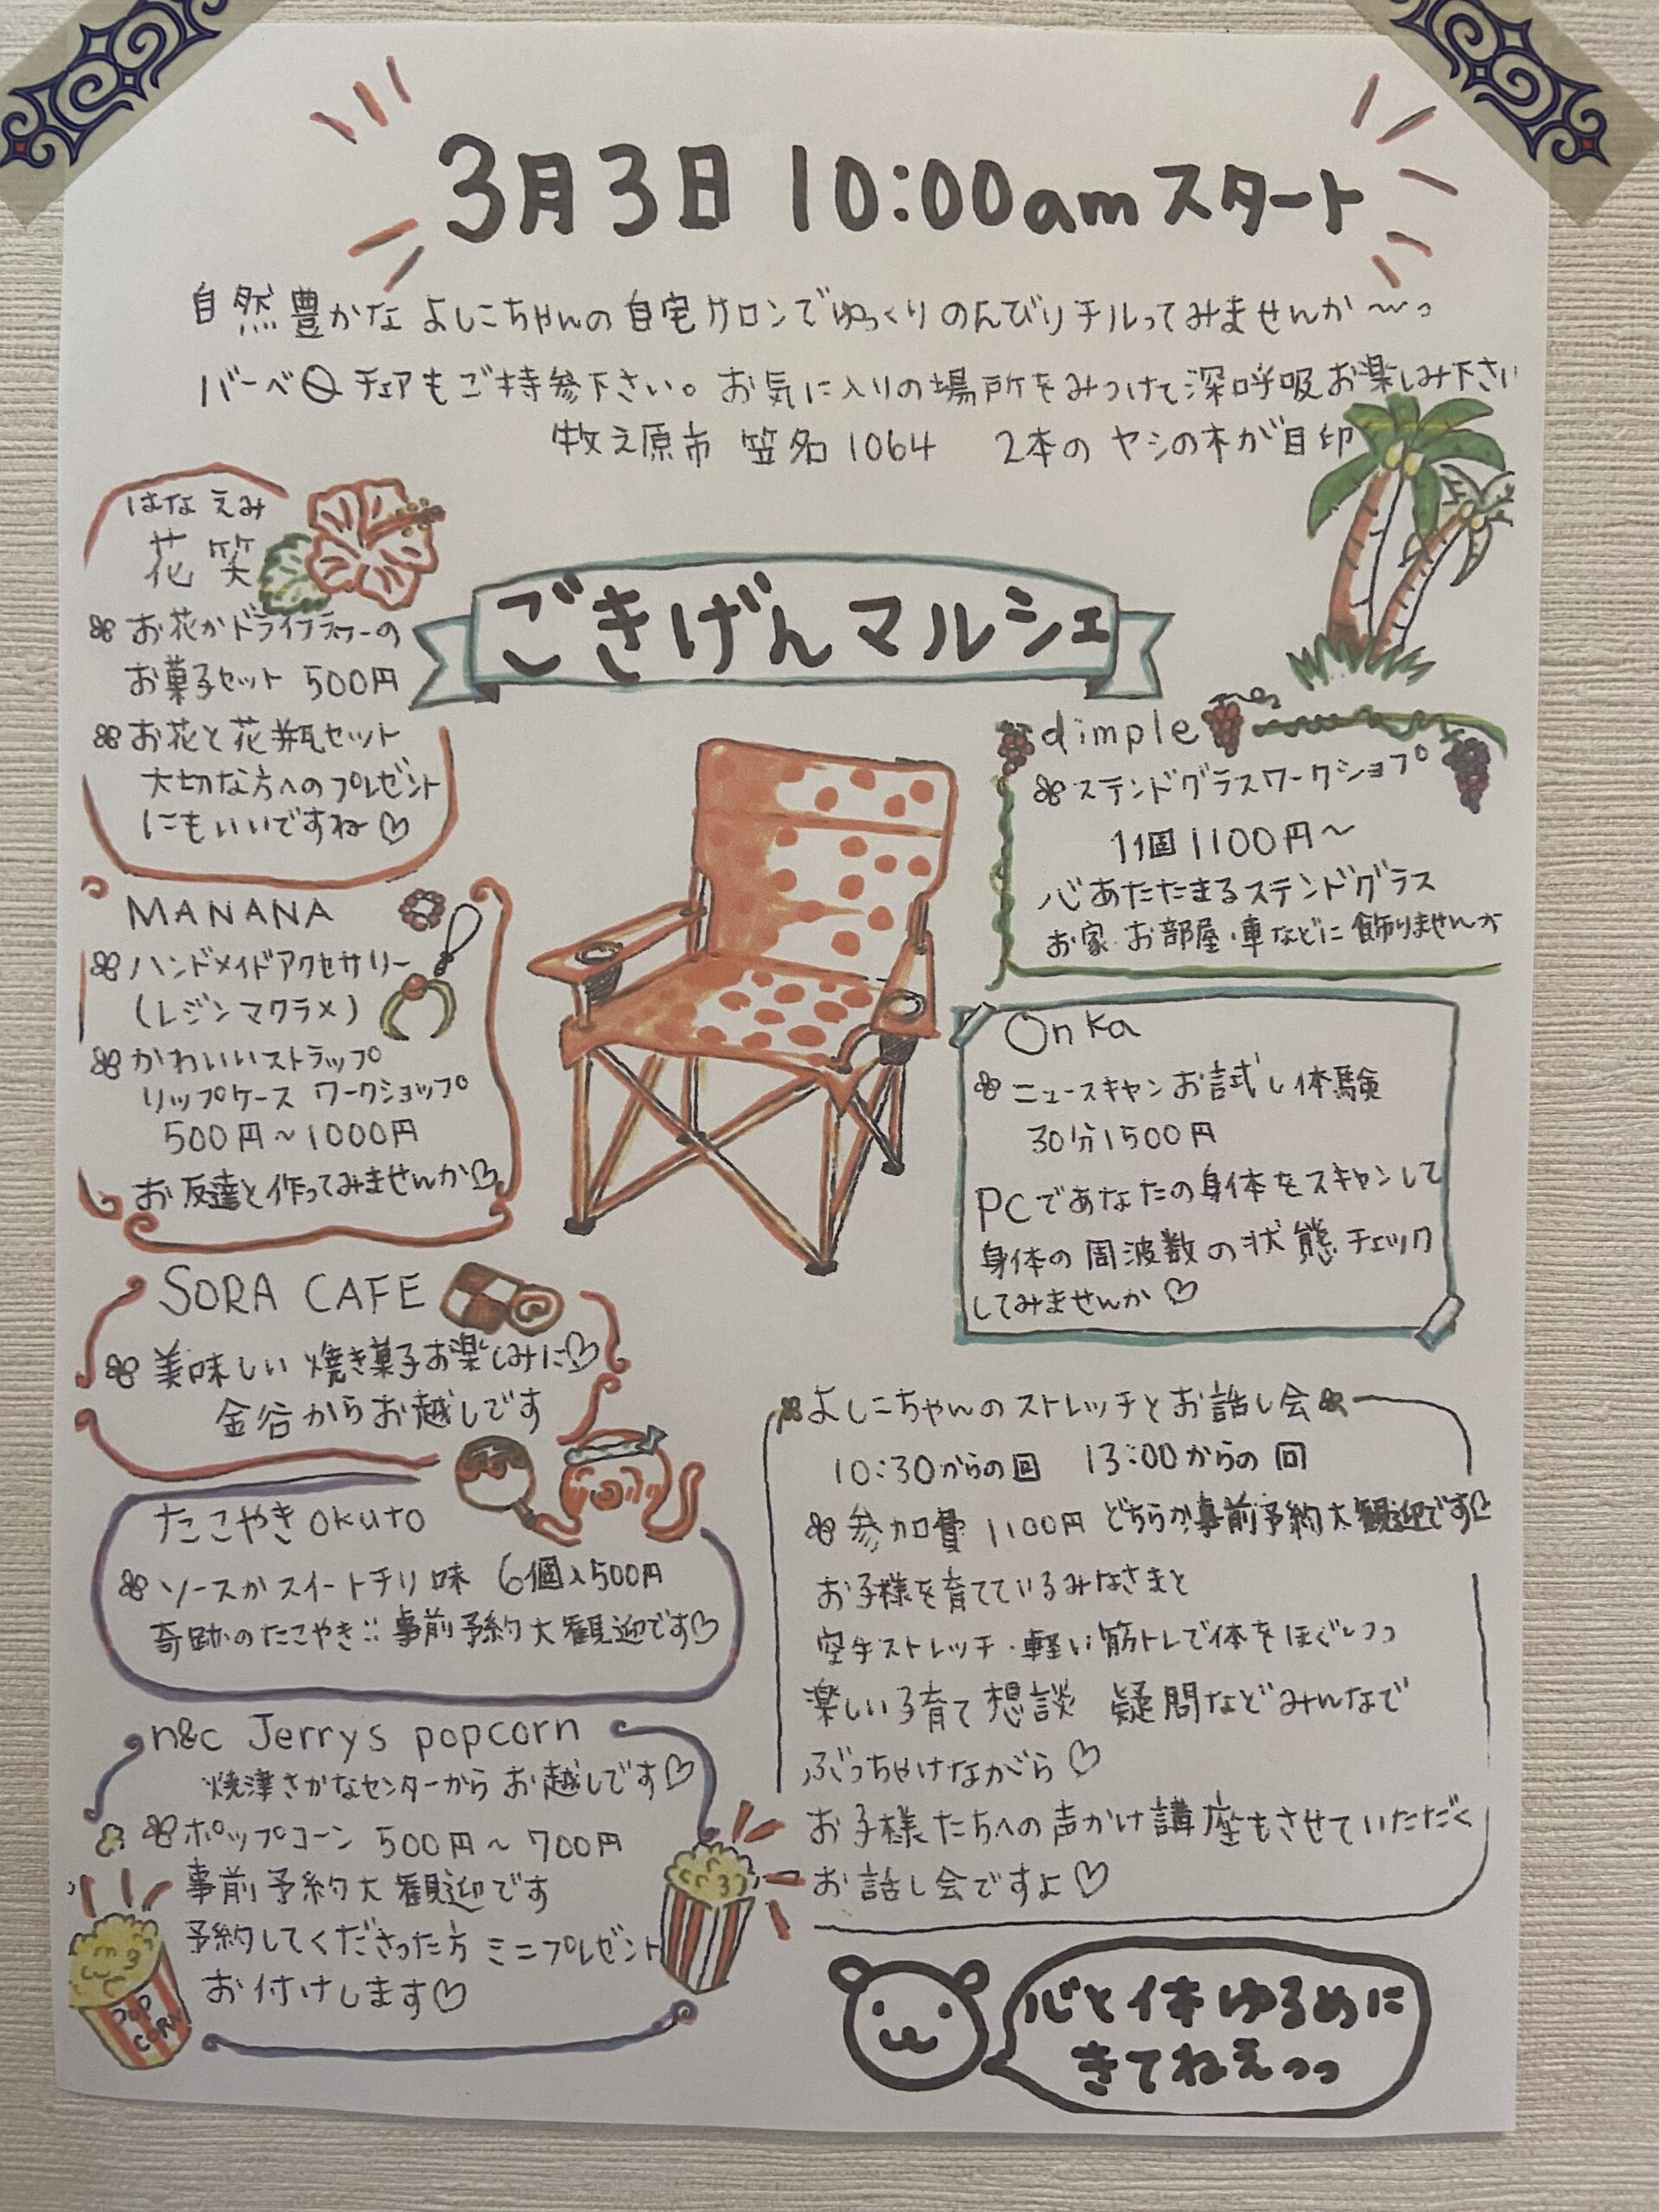 3月3日 10:00amスタート
自然豊かな よしこちゃんの自宅サロンでゆっくりのんびりチルってみませんか〜っ
バーベQチェアもご持参下さい。お気に入りの場所をみつけて深呼吸お楽しみ下さい
牧之原市 笠名1064 2本のヤシの木が目印
はな えみ
花 笑
お花かドライフラワーの
お菓子セット 500円
お花と花瓶セット
大切な方へのプレゼント
にもいいですね♡
ごきげんマルシェ
dimple
ステンドグラスワークショプ
1個1100円〜
心あたたまるステンドグラス
お家・お部屋・車などに飾りませんか
MANANA
ハンドメイドアクセサリー
(レジンマクラメ)
かわいいストラップ
リップケース ワークショップ
500円〜1000円
お友達と作ってみませんか♡
Onka
ニュースキャンお試し体験
30分1500円
PCであなたの身体をスキャンして
身体の周波数の状態チェック
してみませんか♡
SORA CAFE
美味しい焼き菓子お楽しみに♡
金谷からお越しです
たこやきokuto
ソースかスイートチリ味 6個入500円
奇跡のたこやき!! 事前予約大観迎です♡
n&c Jerrys popcorn
焼津さかなセンターからお越しです♡
ポップコーン 500円〜700円
事前予約大観迎です
予約してくださった方 ミニプレゼント
お付けします♡
POP
CORN
よしこちゃんのストレッチとお話し会
10:30からの回 13:00からの回
参加費 1100円 どちらか事前予約大観迎です♡
お子様を育てているみなさまと
空手ストレッチ・軽い筋トレで体をほぐしつつ
楽しい子育て想談 疑問などみんなで
ぶっちゃけながら♡
お子様たちへの声かけ講座もさせていただく
お話し会ですよ♡
心と体ゆるめに
きてねえっっ